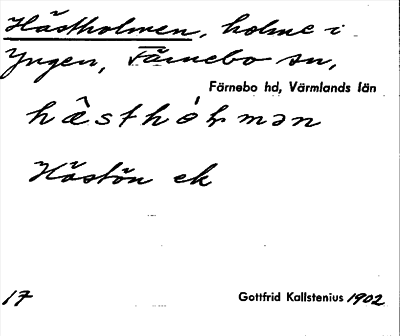 Hästholmen, holme i
Yngen, Färnebo sn,
Färnebo hd, Värmlands län
Hästön ek
17
Gottfrid Kallstenius 1902